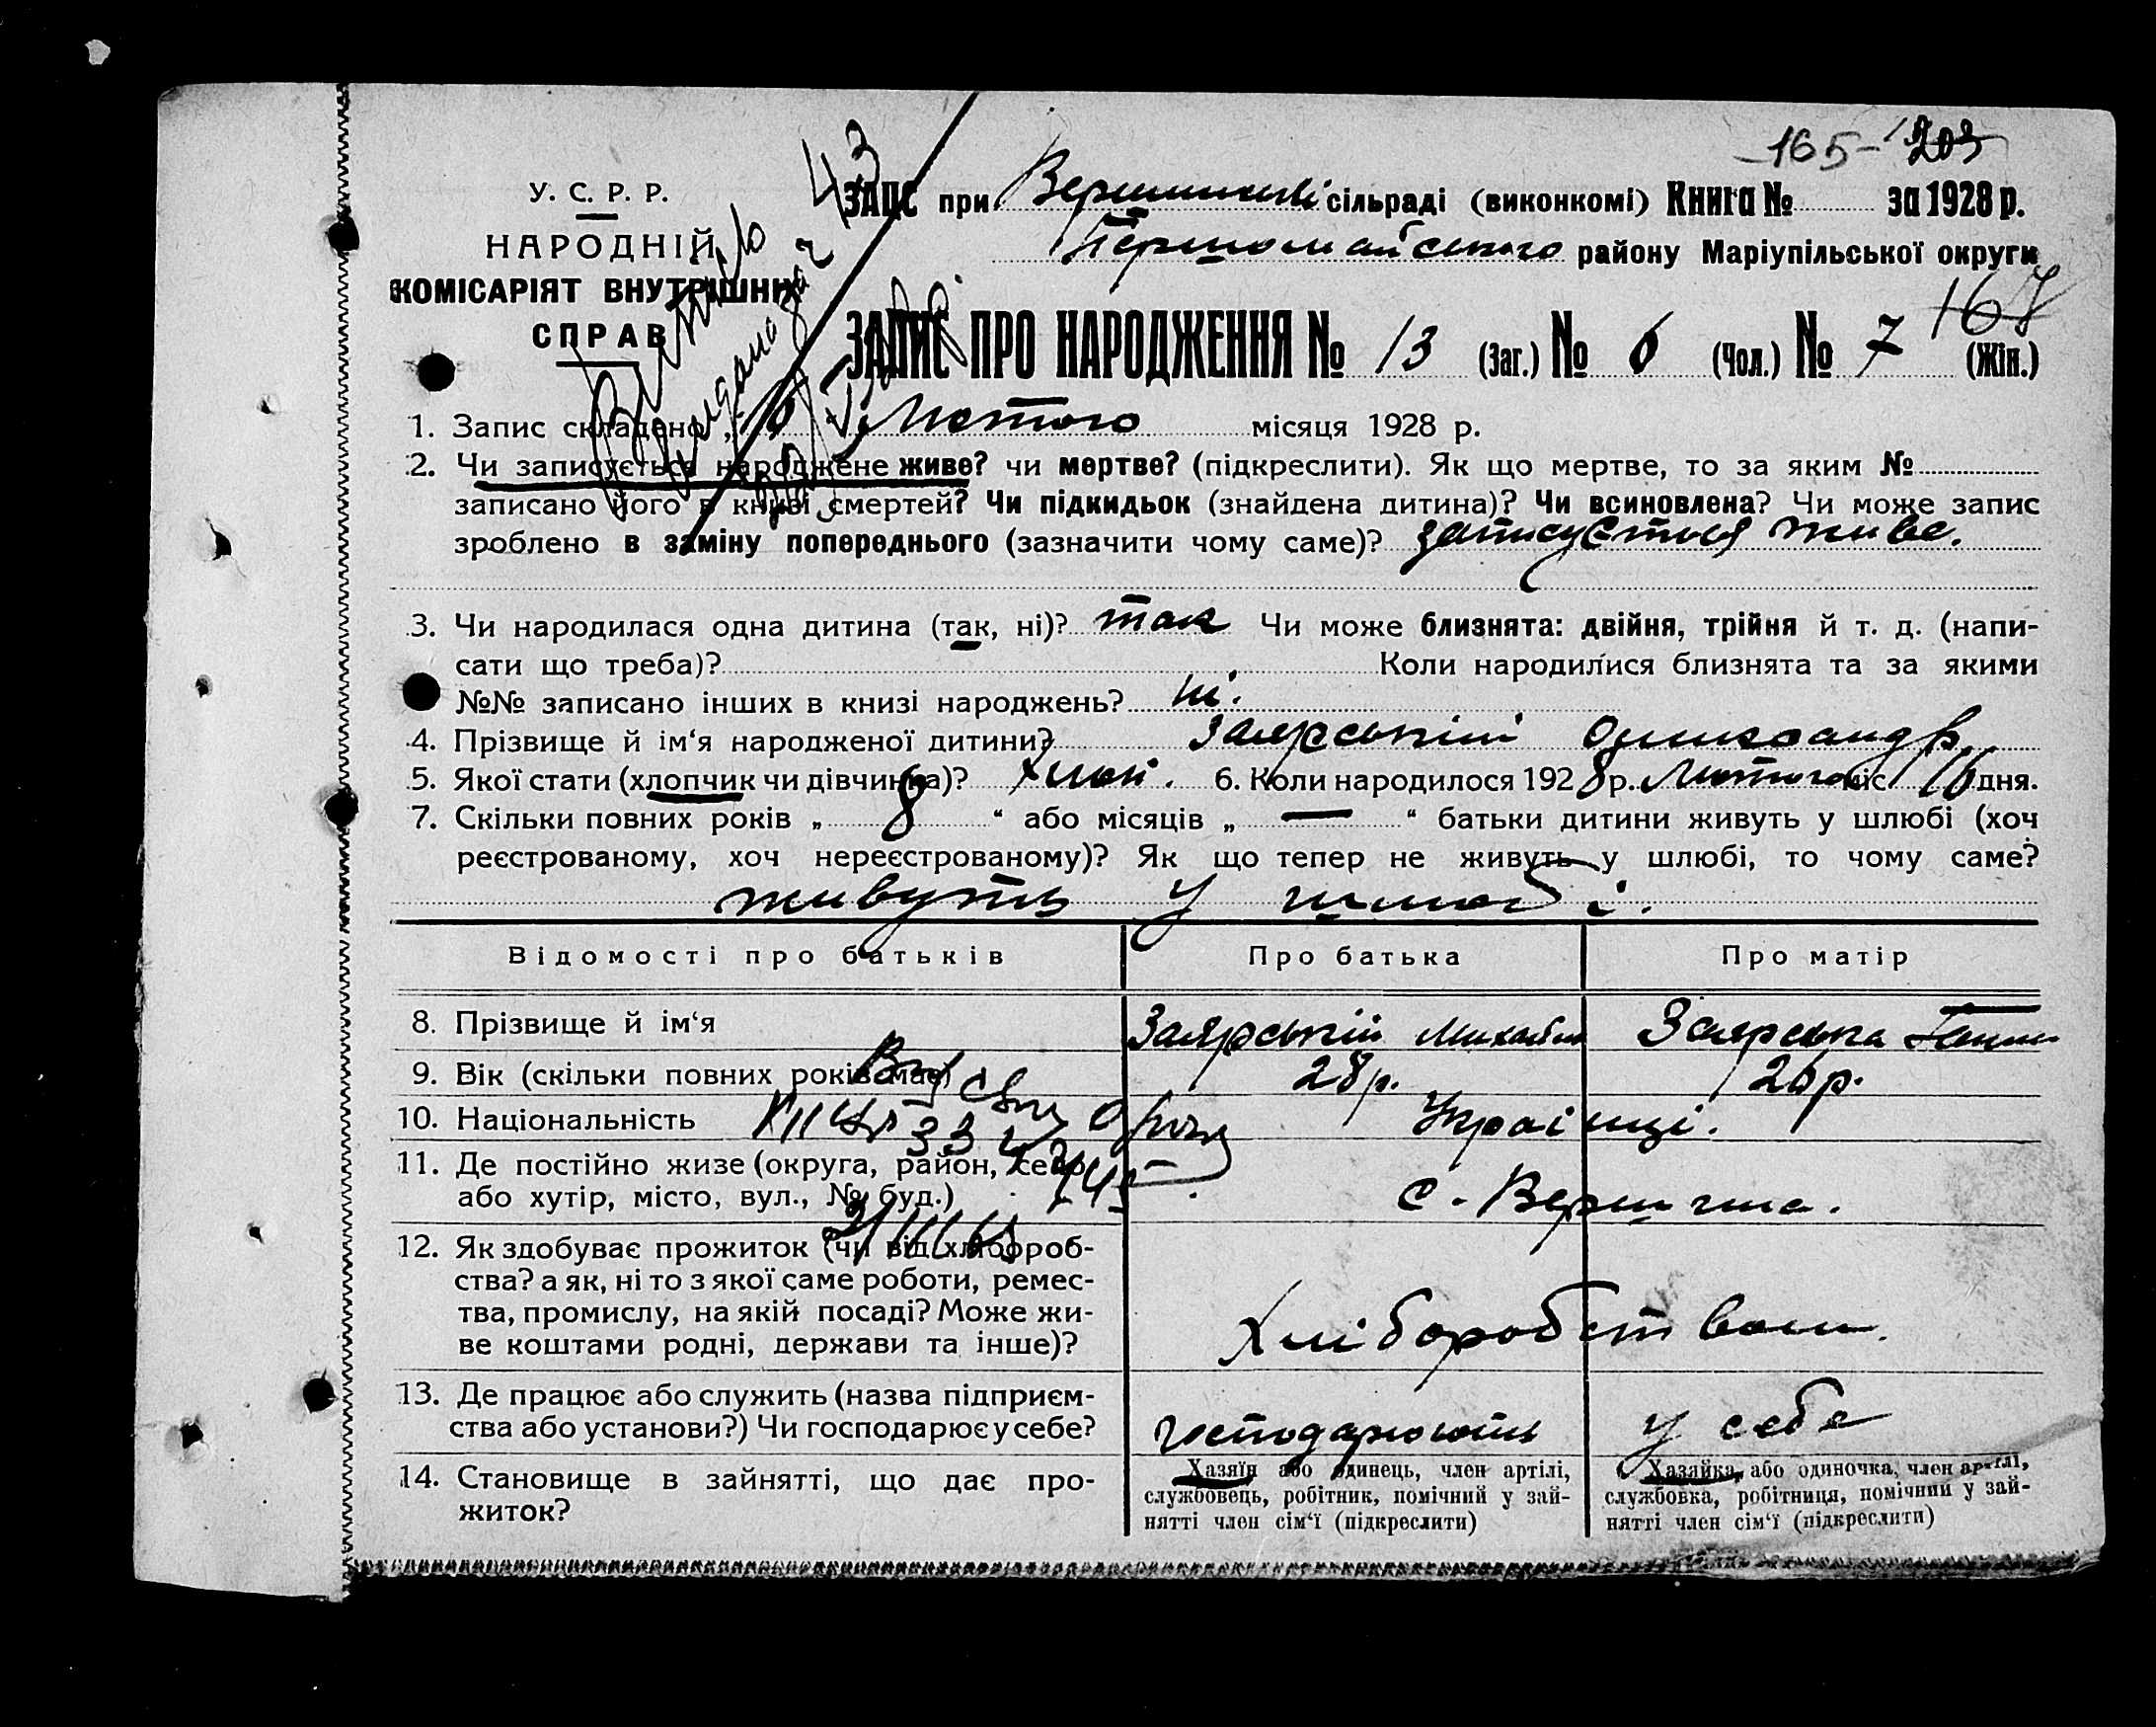 165-
У. С. Р. Р.
НАРОДНІЙ
КОМІСАРІЯТ ВНУТРІШНІХ
СПРАВ
43
ЗАГС при сільраді (виконкомі) Книга № за 1928 р.
Першомайського району Маріупільської округи
167
ЗАПИС ПРО НАРОДЖЕННЯ № 13 (Заг.) № 6 (Чол.) № 7 (Жін.)
1. Запис складено „ Лютого місяця 1928 р.
2. Чи записується народжене живе? чи мертве? (підкреслити). Як що мертве, то за яким №
записано його в книзі смертей? Чи підкидьок (знайдена дитина)? Чи всиновлена? Чи може запис
зроблено в заміну попереднього (зазначити чому саме)? записується живе.
3. Чи народилася одна дитина (так, ні)? так Чи може близнята: двійня, трійня й т. д. (напи-
сати що треба)? Коли народилися близнята та за якими
№№ записано інших в книзі народжень? ні.
4. Прізвище й ім‘я народженої дитини? Заярський Олександр.
5. Якої стати (хлопчик чи дівчинка)? хлоп. 6. Коли народилося 1928 р. Лютого міс. 16 дня.
7. Скільки повних років „ 8 “ або місяців „ — “ батьки дитини живуть у шлюбі (хоч
реєстрованому, хоч нереєстрованому)? Як що тепер не живуть у шлюбі, то чому саме?
живуть у шлюбі.
Відомості про батьків Про батька Про матір
8. Прізвище й ім‘я Заярський Михайло Заярська Ганна
9. Вік (скільки повних років має) 28 р. 26 р.
10. Національність Українці.
11. Де постійно живе (округа, район, село
або хутір, місто, вул., № буд.) с. Вершина.
12. Як здобуває прожиток (чи від хлібороб-
ства? а як, ні то з якої саме роботи, ремес-
тва, промислу, на якій посаді? Може жи-
ве коштами родні, держави та інше)? Хліборобством.
13. Де працює або служить (назва підприєм-
ства або установи?) Чи господарює у себе? господарюють у себе
14. Становище в зайнятті, що дає про-
житок?
Хазяїн або одинець, член артілі,
службовець, робітник, помічний у зай-
нятті член сім‘ї (підкреслити)
Хазяйка, або одиночка, член артілі,
службовка, робітниця, помічний у зай-
нятті член сім‘ї (підкреслити)